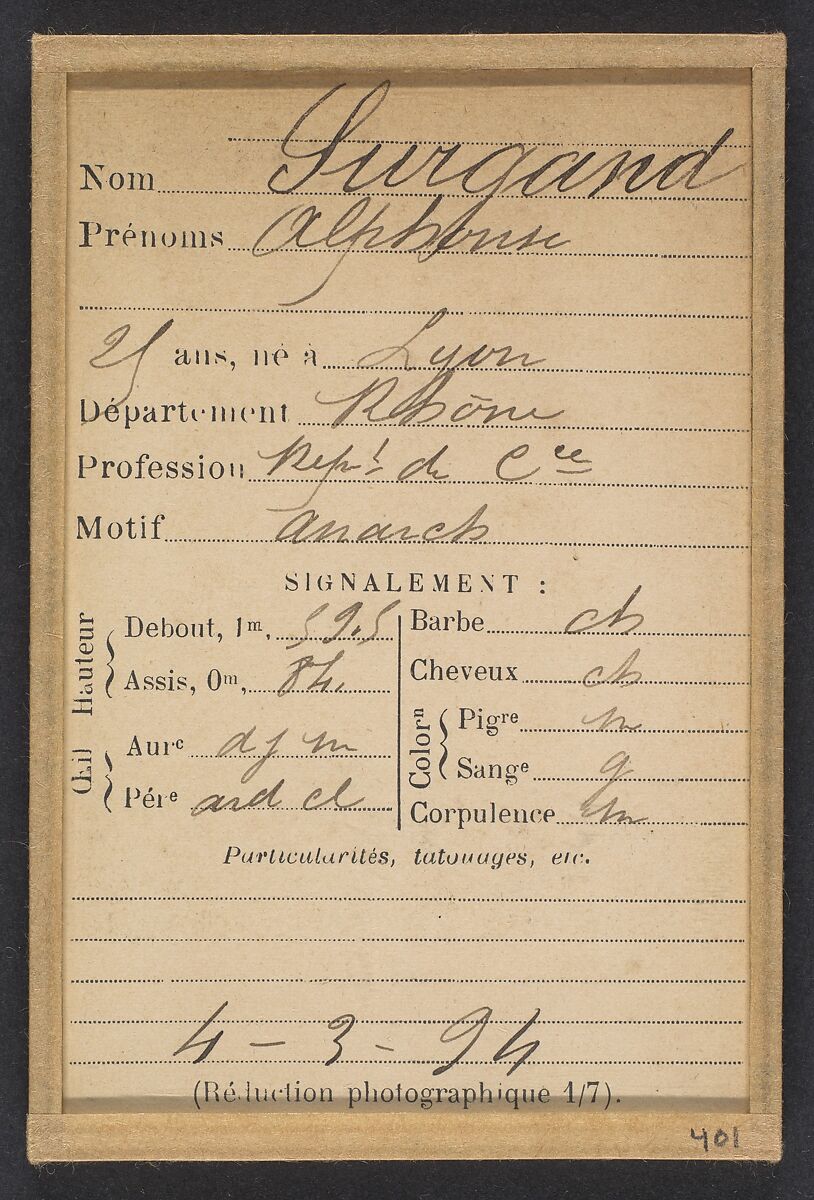 Nom Surgand
Prénoms Alphonse
25 ans, né à Lyon
Département Rhône
Profession Repnt de Cce
Motif anarch
SIGNALEMENT :
Hauteur
Debout, 1m, 59.5
Assis, 0m, 84.
Œil
Aurc dj m
Pére ard cl
Barbe ch
Cheveux ch
Colorn
Pigre m
Sange g
Corpulence m
Particularités, tatouages, etc.
4 - 3 - 94
(Réduction photographique 1/7).
401